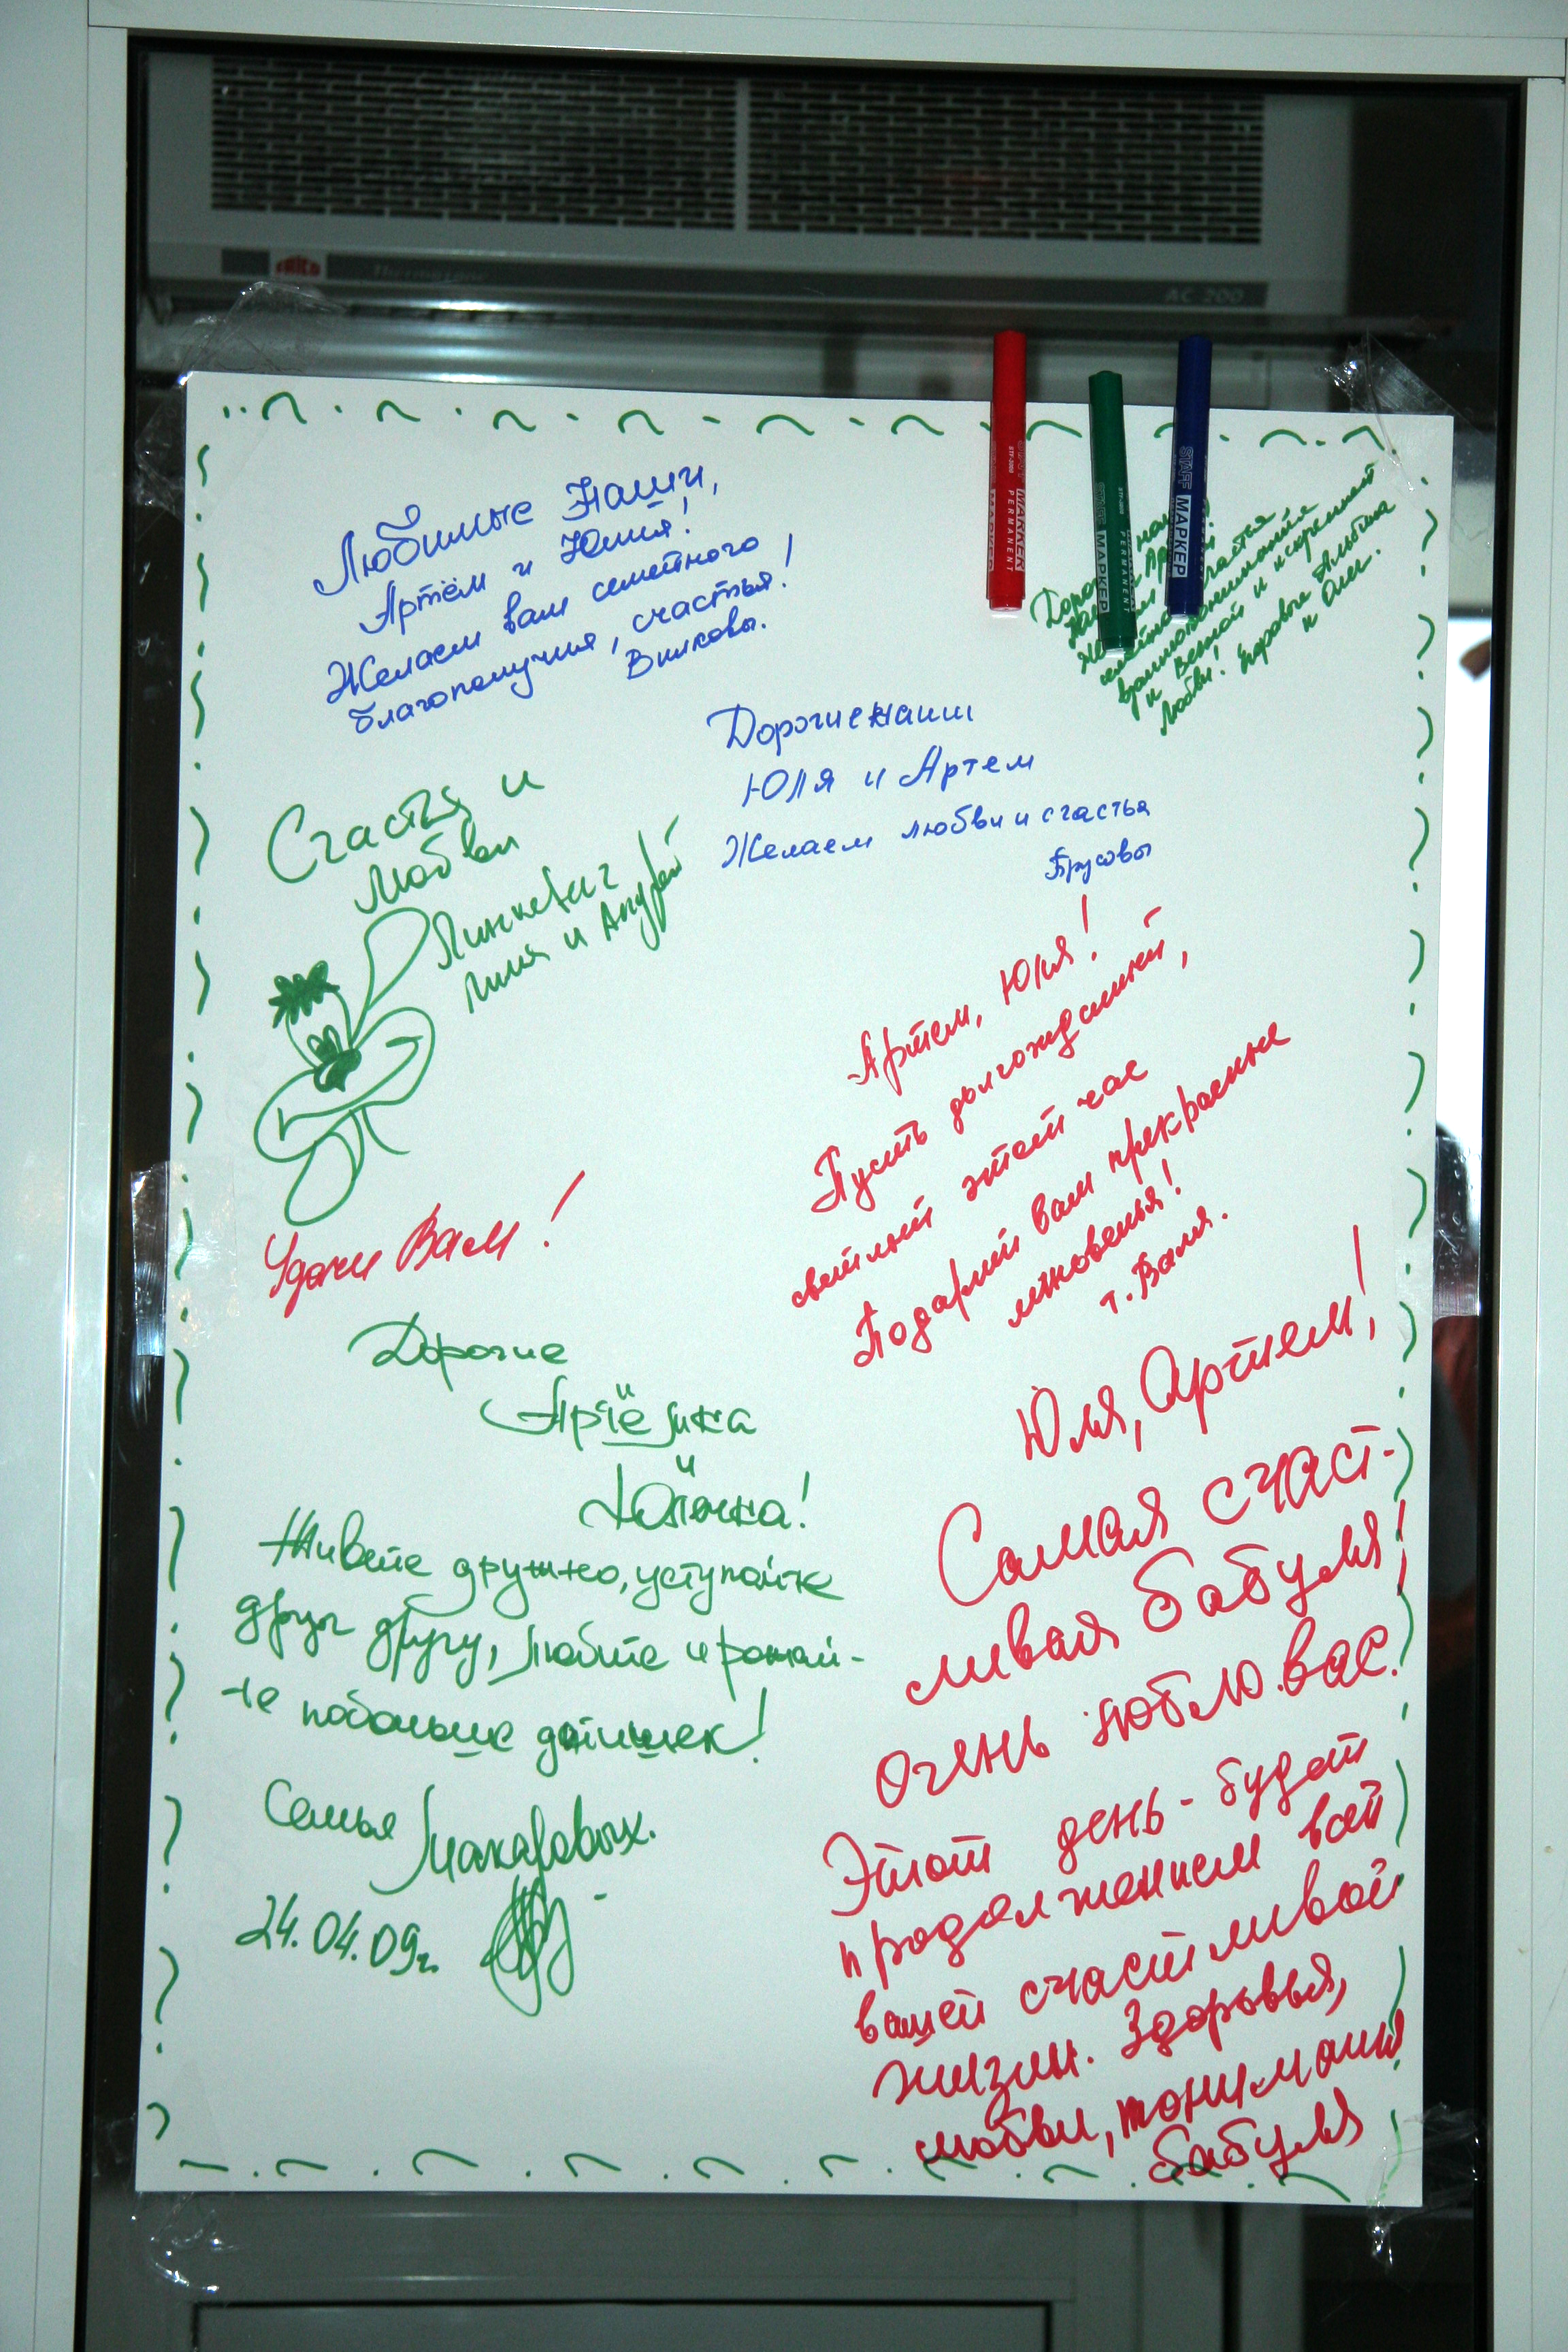 FRICO Thermozone AC 200
MARKER
PERMANENT
МАРКЕР
PERMANENT
STAFF МАРКЕР
Любимые Наши,
Артём и Юлия!
Желаем вам семейного
благополучия, счастья!
Вилковы.
Дорог
семейного счастья
взаимопонимания
и Вечной и искренней
Любви! Здоровья Альбина
и Олег.
Дорогие наши
Юля и Артем
Желаем любви и счастья
Брусовы
Счастья и
Любви
Линкевич
Лиля и Андрей
Артем, Юля!
Пусть долгожданный,
светлый этот час
Подарит вам прекрасные
мгновенья!
т. Валя.
Удачи Вам!
Дорогие
Артёмка
и
Юлечка!
Живите дружно, уступайте
друг другу, любите и рожай-
те побольше детишек!
Семья Макаровых.
24.04.09г.
Юля, Артем!
Самая счаст-
ливая бабуля!
очень люблю вас.
Этот день - будет
продолжением всей
вашей счастливой
жизни. Здоровья,
любви, понимания
бабуля